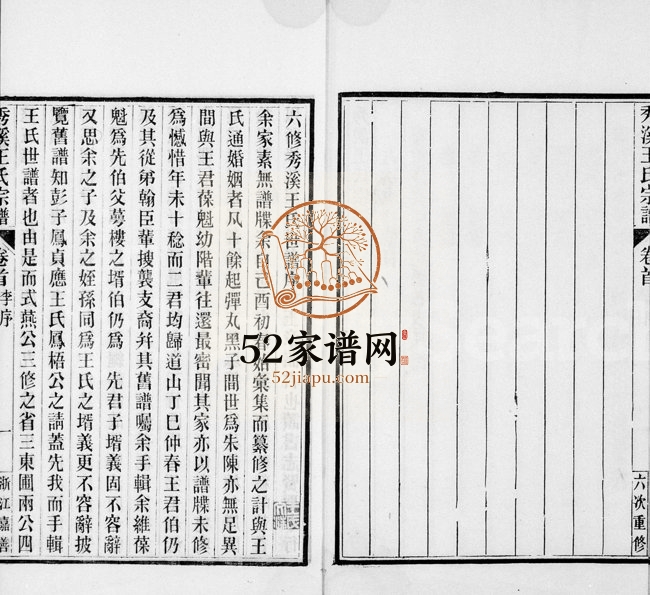 秀溪王氏宗譜
卷首
六次重修
六修秀溪王氏世譜序
余家素無譜牒余自己酉初
彙集而纂修之計與王
氏通婚姻者凡十餘起彈丸黑子間世爲朱陳亦無足異
間與王君葆魁幼階輩往還最密聞其家亦以譜牒未修
爲憾惜年未十稔而二君均歸道山丁巳仲春王君伯仍
及其從弟翰臣輩搜襲支裔幷其舊譜囑余手輯余維葆
魁爲先伯父夢樓之壻伯仍爲 先君子壻義固不容辭
又思余之子及余之姪孫同爲王氏之壻義更不容辭披
覽舊譜知彭子鳳貞應王氏鳳梧公之請蓋先我而手輯
王氏世譜者也由是而式燕公三修之省三東圃兩公四
秀溪王氏宗譜
卷首
李序
浙江嘉善
52家谱网
52jiapu.com